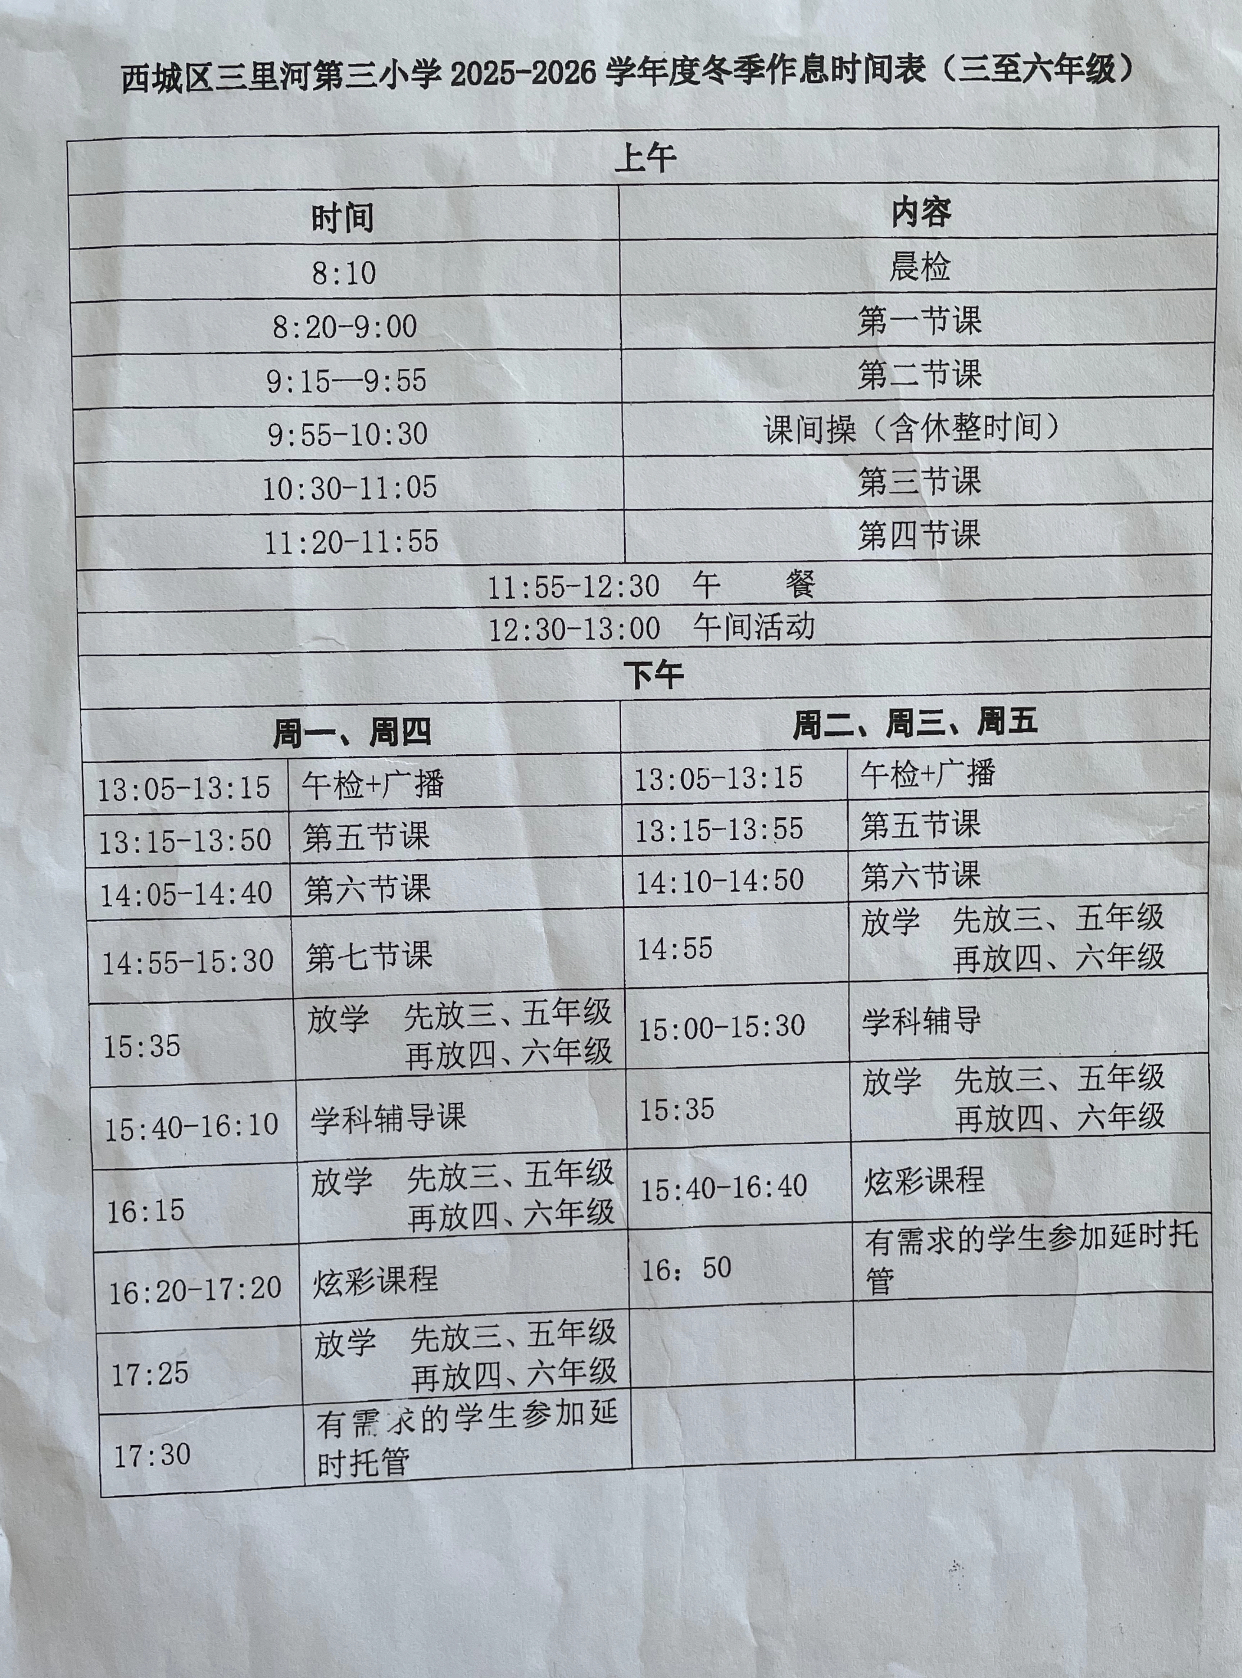 西城区三里河第三小学 2025-2026 学年度冬季作息时间表（三至六年级）
上午
时间 内容
8:10 晨检
8:20-9:00 第一节课
9:15—9:55 第二节课
9:55-10:30 课间操（含休整时间）
10:30-11:05 第三节课
11:20-11:55 第四节课
11:55-12:30 午 餐
12:30-13:00 午间活动
下午
周一、周四
13:05-13:15 午检+广播
13:15-13:50 第五节课
14:05-14:40 第六节课
14:55-15:30 第七节课
15:35 放学 先放三、五年级
再放四、六年级
15:40-16:10 学科辅导课
16:15 放学 先放三、五年级
再放四、六年级
16:20-17:20 炫彩课程
17:25 放学 先放三、五年级
再放四、六年级
17:30 有需求的学生参加延
时托管
周二、周三、周五
13:05-13:15 午检+广播
13:15-13:55 第五节课
14:10-14:50 第六节课
14:55 放学 先放三、五年级
再放四、六年级
15:00-15:30 学科辅导
15:35 放学 先放三、五年级
再放四、六年级
15:40-16:40 炫彩课程
16：50 有需求的学生参加延时托
管